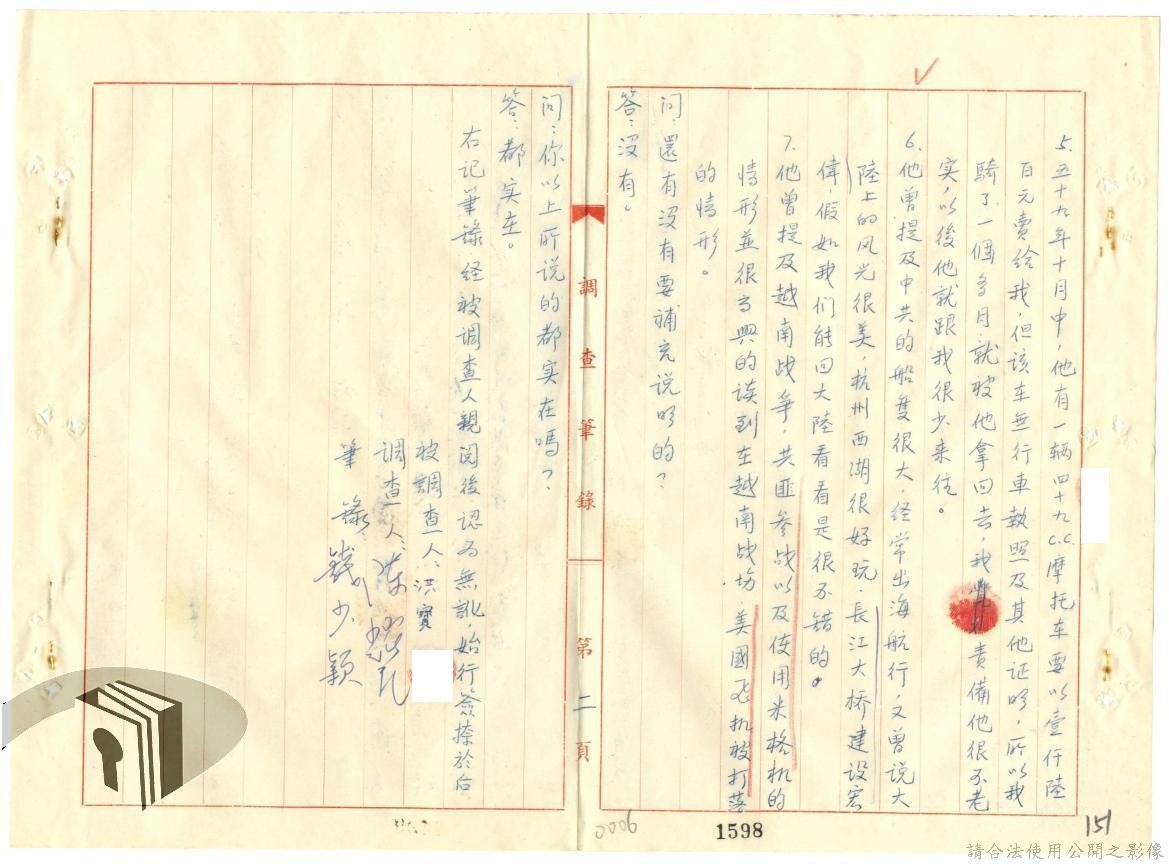 5.五十九年十月中,他有一辆四十九c.c.摩托车要以壹仟陸
百元賣给我,但该车無行車執照及其他证明,所以我
騎了一個多月,就被他拿回去,我責備他很不老
实,以後他就跟我很少来往。
6.他曾提及中共的船隻很大,经常出海航行,又曾说大
陸上的风光很美,杭州西湖很好玩,長江大桥建设宏
偉,假如我们能回大陸看看是很不错的。
7.他曾提及越南战争,共匪参战以及使用米格机的
情形並很高興的谈到在越南战场,美國飞机被打落
的情形。
问:還有没有要補充说明的?
答:没有。
調查筆錄
第二頁
问:你以上所说的都实在嗎?
答:都实在。
右记筆錄经被调查人親阅後認为無訛,始行簽捺於后
被調查人:洪寶
調查人:
筆錄:錢少穎
0006
1598
151
請合法使用公開之影像